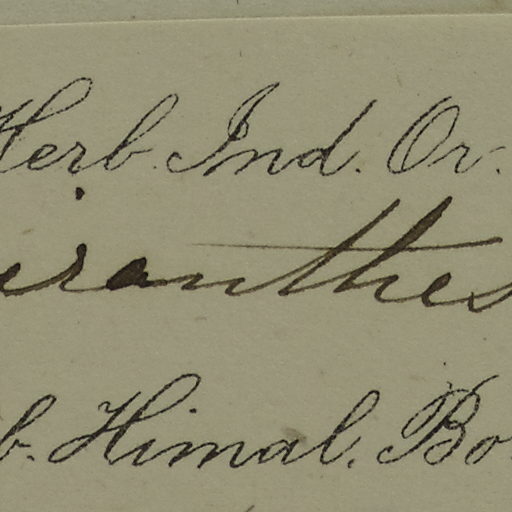 Herb. Ind. Or.
iranthes
b. Himal. Bo